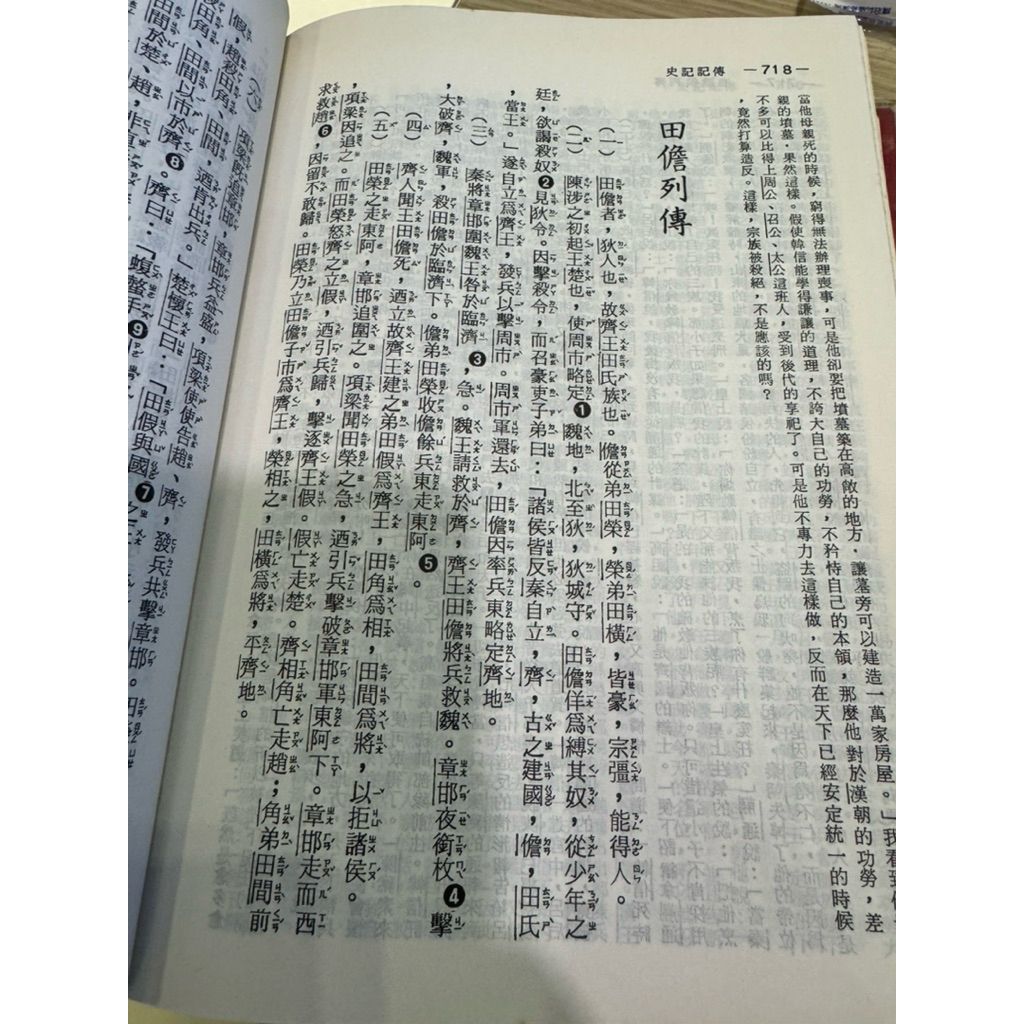 史記記傳 —718—
(當他母親死的時候，窮得無法辦理喪事，可是他卻要把墳墓築在高敞的地方，讓墓旁可以建造一萬家房屋。」我看到
親的墳墓，果然這樣。假使韓信能學得謙讓的道理，不誇大自己的功勞，不矜恃自己的本領，那麼他對於漢朝的功勞，差
不多可以比得上周公、召公、太公這班人，受到後代的享祀了。可是他不專力去這樣做，反而在天下已經安定統一的時候
，竟然打算造反。這樣，宗族被殺絕，不是應該的嗎？
田儋列傳
（一） 田儋者，狄人也，故齊王田氏族也。儋從弟田榮，榮弟田橫，皆豪，宗彊，能得人。
（二） 陳涉之初起王楚也，使周市略定❶魏地，北至狄，狄城守。田儋佯爲縛其奴，從少年之
廷，欲謁殺奴❷見狄令。因擊殺令，而召豪吏子弟曰：「諸侯皆反秦自立，齊，古之建國，儋，田氏
，當王。」遂自立爲齊王，發兵以擊周市。周市軍還去，田儋因率兵東略定齊地。
（三） 秦將章邯圍魏王咎於臨濟❸，急。魏王請救於齊，齊王田儋將兵救魏。章邯夜銜枚❹擊
，大破齊，魏軍，殺田儋於臨濟下。儋弟田榮收儋餘兵東走東阿❺。
（四） 齊人聞王田儋死，迺立故齊王建之弟田假爲齊王，田角爲相，田間爲將，以拒諸侯。
（五） 田榮之走東阿，章邯追圍之。項梁聞田榮之急，迺引兵擊破章邯軍東阿下。章邯走而西
，項梁因追之。而田榮怒齊之立假，迺引兵歸，擊逐齊王假。假亡走楚。齊相角亡走趙；角弟田間前
求救趙❻，因留不敢歸。田榮乃立田儋子市爲齊王，榮相之，田橫爲將，平齊地。
（六） 項梁既追章邯，章邯兵益盛，項梁使使告趙、齊，發兵共擊章邯。田
假，趙殺田角、田間，迺肯出兵。」楚懷王曰：「田假與國❼之
田間於楚、趙，
田角、田間以市於齊❽。齊曰：「蝮螫手❾